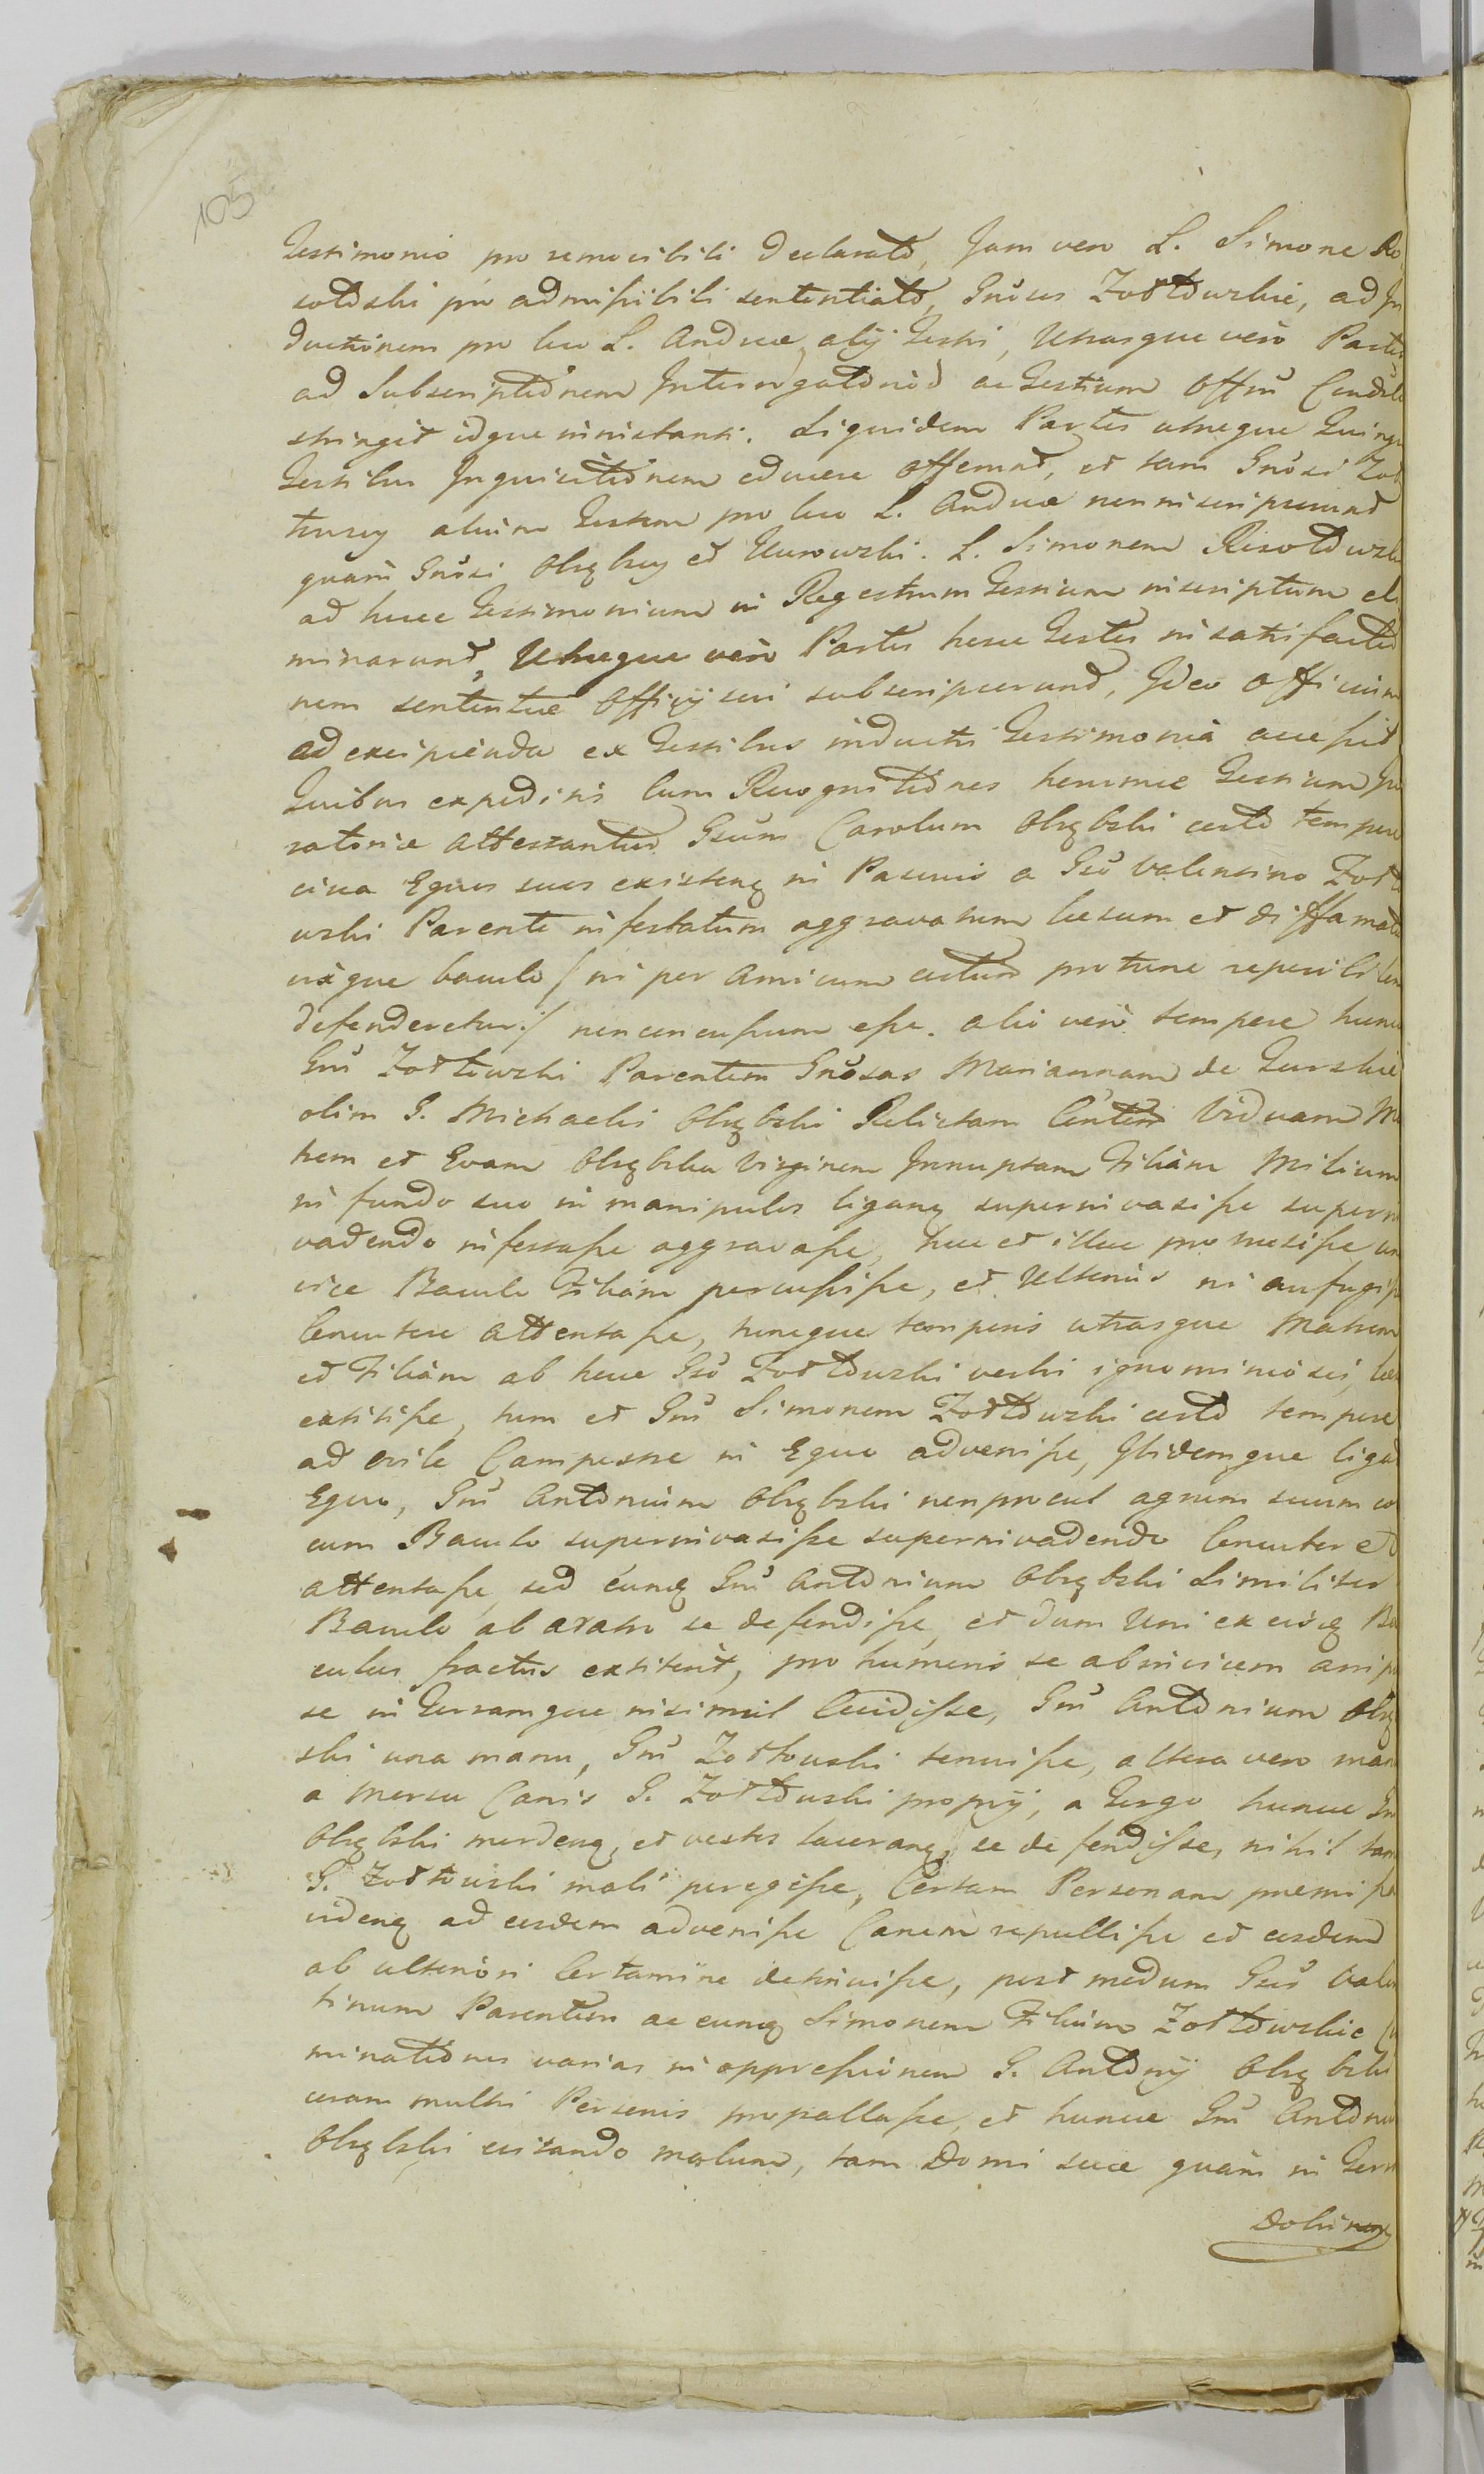 105
Testimonio pro removibili declarato, Jam vero L. Simone Ro
sotowski pro admissibili sententiato, Gnosus Zołtowskie, ad In
ductionem pro loco L. Andreæ alij Testis, Utrasque verò Partes
ad Subscriptionem Interrogatorio ac Testium Offiũ
stringit idque inistanti. Siquidem Partes utreque Quinque
Testibus Inquisitionem educere offerunt, et tam Gnosi Zoł
towscy alium Testem pro loco L. Andreæ non inscripserunt
quam Gnosi Obrębscy et Gurowski. L. Simonem Risotowski
ad hocce Testimonium in Regestrum Testium inscriptum eli
minarunt, Utreque verò Partes hosce Testes in satisfactio
nem sententiæ Officij sui subscripserunt, Ideo Officium
ad excipienda ex Testibus inductis Testimonia accessit
Quibus expeditis cum Recognitiones horumce Testium Ju
ratoriæ attestantur Gsum Carolum Obrębski certo tempore
circa Equos suos existenę in Pascuis a Gso Valentino Zołto
wski Parente infestatum aggravatum læsum et diffamatu
uxque baculo /: ni per Amicum certum protunc reperibilem
defenderetur :/ non concussum esse. alio verò tempore hunc
Gm Zołtowski Parentem Gnosas Mariannam de Gurskie
olim G. Michaelis Obrębski Relictam Viduam Ma
trem et Evam Obrębska Virginem Innuptam Filiam Milium
in fundo suo in manipulos liganę superinvasisse superin
vadendo infestasse aggravasse, huc et illuc una
vice Baculo Filiam percussisse, et ulterius ni aufugiss
Concutere attentasse, tuncque temporis utrasque Matrem
et Filiam ab hocce Gso Zołtowski verbis ignominiosis, læs
extitisse, tum et Gm Simonem Zołtowski certo tempore
ad ovile Campestre in Equo advenisse, Ibidemque liga
Equo, Gm Antonium Obrębski non procul agrum suum co
cum Baculo superinvasisse superinvadendo Concutere et
attentasse, sed eunę Gm Antonium Obrębski Similiter
Baculo ab aratro se defendisse, et dum Uni ex eisdę Ba
culus fractus extiterit, pro humeris se abinvicem arripu
se in Terramque insimul Cecidisse, Gm Antonium Obrę
ski una manu, Gm Zołtowski tenuisse, altera vero manu
a morsu Canis G. Zołtowski proprij, a Tergo hunce Gm
Obrębski mordenę, et vestes laceranę, se defendisse, nihil tam
G. Zołtowski mali peregisse, Certam Personam premissa
videnę ad eosdem advenisse Canem repullisse et eosdem
ab ulteriori Certamine detinuisse, post modum Gsos Valen
tinum Parentem ac eunę Simonem Filium Zołtowskie Co
minationes varias in oppressionem G. Antonij Obrębski
coram multis Personis propallasse, et hunce Gm Antoniu
Obrębski evitando malum, tam Domi suæ quam in Terri